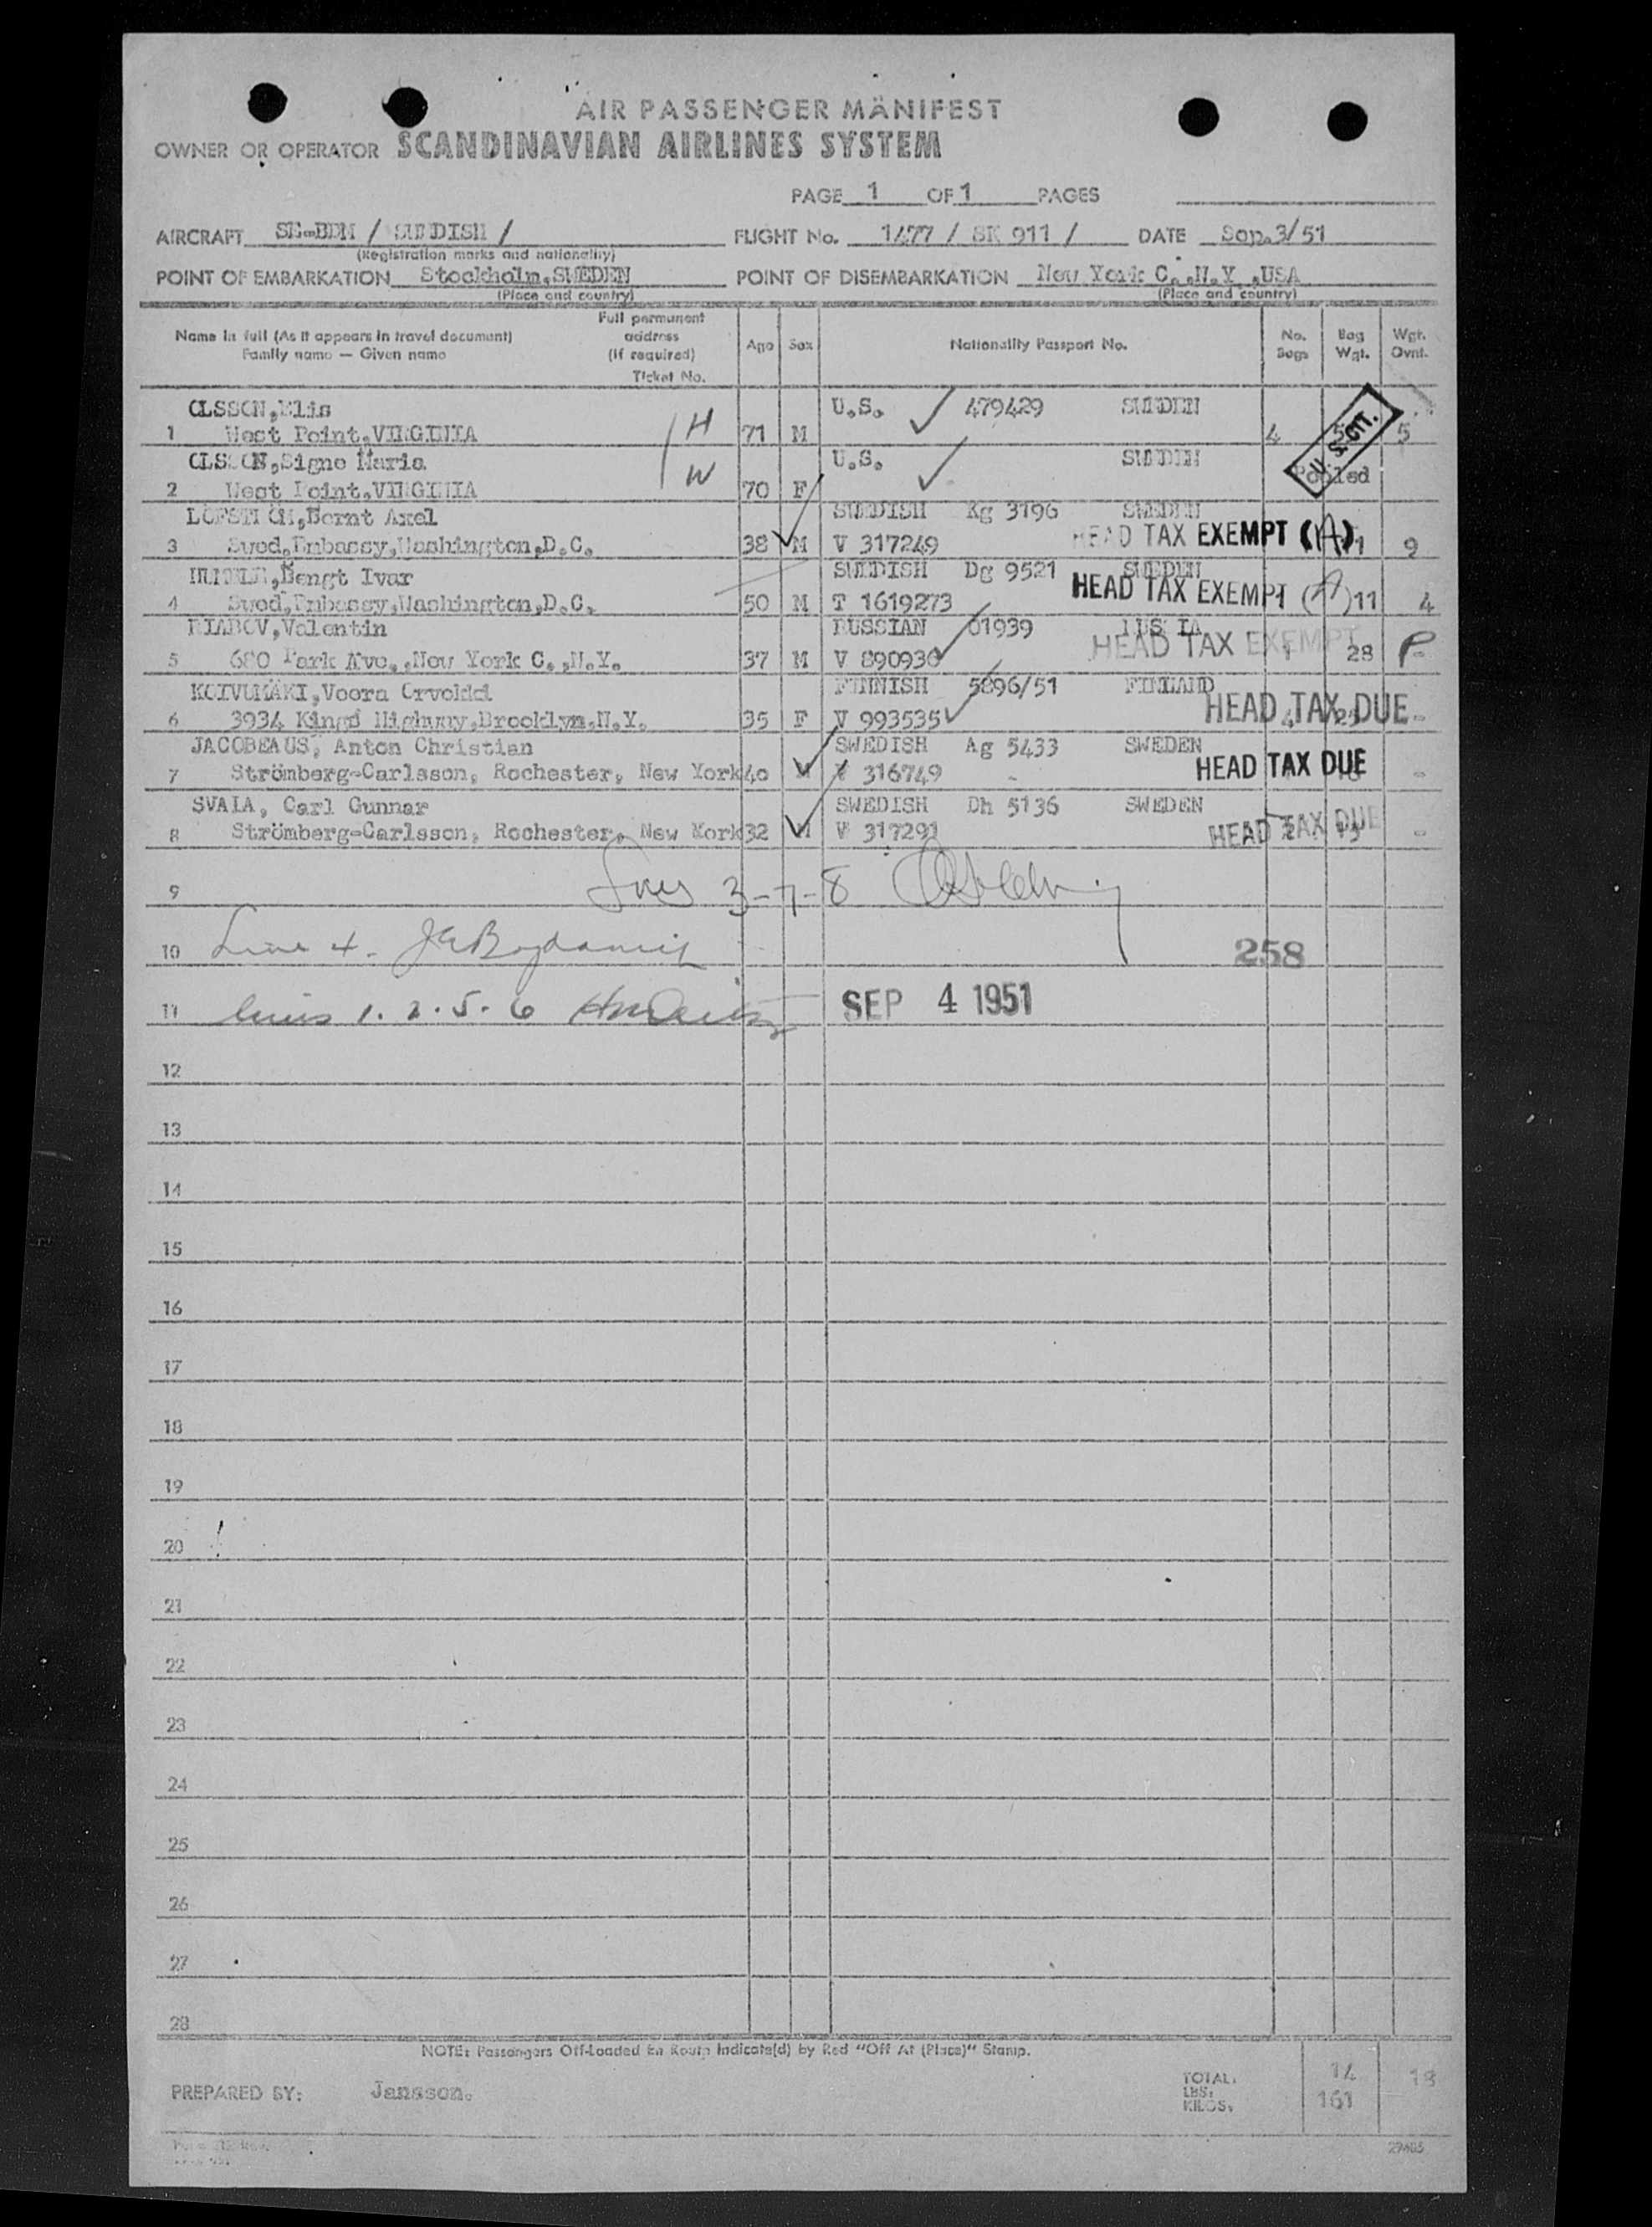 AIR PASSENGER MANIFEST
OWNER OR OPERATOR SCANDINAVIAN AIRLINES SYSTEM
PAGE 1 OF 1 PAGES
AIRCRAFT SE-BDM / SWEDISH / FLIGHT No. 1477 / SK 911 / DATE Sep.3/51
(Registration marks and nationality)
POINT OF EMBARKATION Stockholm,SWEDEN POINT OF DISEMBARKATION New York C.,N.Y.,USA
(Place and country) (Place and country)
Name in full (As it appears in travel document) Family name — Given name Full permanent address (If required) Ticket No. Age Sex Nationality Passport No. No. Bags Bag Wgt. Wgt. Ovnt.
OLSSON,Elis U.S. 479429 SWEDEN
1 West Point,VIRGINIA H 71 M 4 5
U.S. CIT.
OLSSON,Signe Maria U.S. SWEDEN
2 West Point,VIRGINIA W 70 F Pooled
LÖFSTRÖM,Bernt Axel SWEDISH Kg 3196 SWEDEN
3 Swed,Embassy,Washington,D.C. 38 M V 317249 HEAD TAX EXEMPT (A) 9
Bengt Ivar SWEDISH Dg 9521 SWEDEN
4 Swed,Embassy,Washington,D.C. 50 M T 1619273 HEAD TAX EXEMPT (A) 11 4
RIABOV,Valentin RUSSIAN 01939 RUSSIA
5 680 Park Ave.,New York C.,N.Y. 37 M V 890930 HEAD TAX EXEMPT 28 P
KOIVUMÄKI,Veera Orvokki FINNISH 5896/51 FINLAND
6 3934 Kings Highway,Brooklyn,N.Y. 35 F V 993535 HEAD TAX DUE -
JACOBEAUS, Anton Christian SWEDISH Ag 5433 SWEDEN
7 Strömberg-Carlsson, Rochester, New York 40 M V 316749 - HEAD TAX DUE -
SVALA, Carl Gunnar SWEDISH Dh 5136 SWEDEN
8 Strömberg-Carlsson, Rochester, New York 32 M V 317291 HEAD TAX DUE -
9 3-7-8
10 Line 4. 258
11 lines 1. 2. 5. 6 SEP 4 1951
12
13
14
15
16
17
18
19
20
21
22
23
24
25
26
27
28
NOTE: Passengers Off-Loaded En Route Indicate(d) by Red "Off At (Place)" Stamp.
PREPARED BY: Jansson. TOTAL: 14 18
LBS:
KILOS. 161
29405